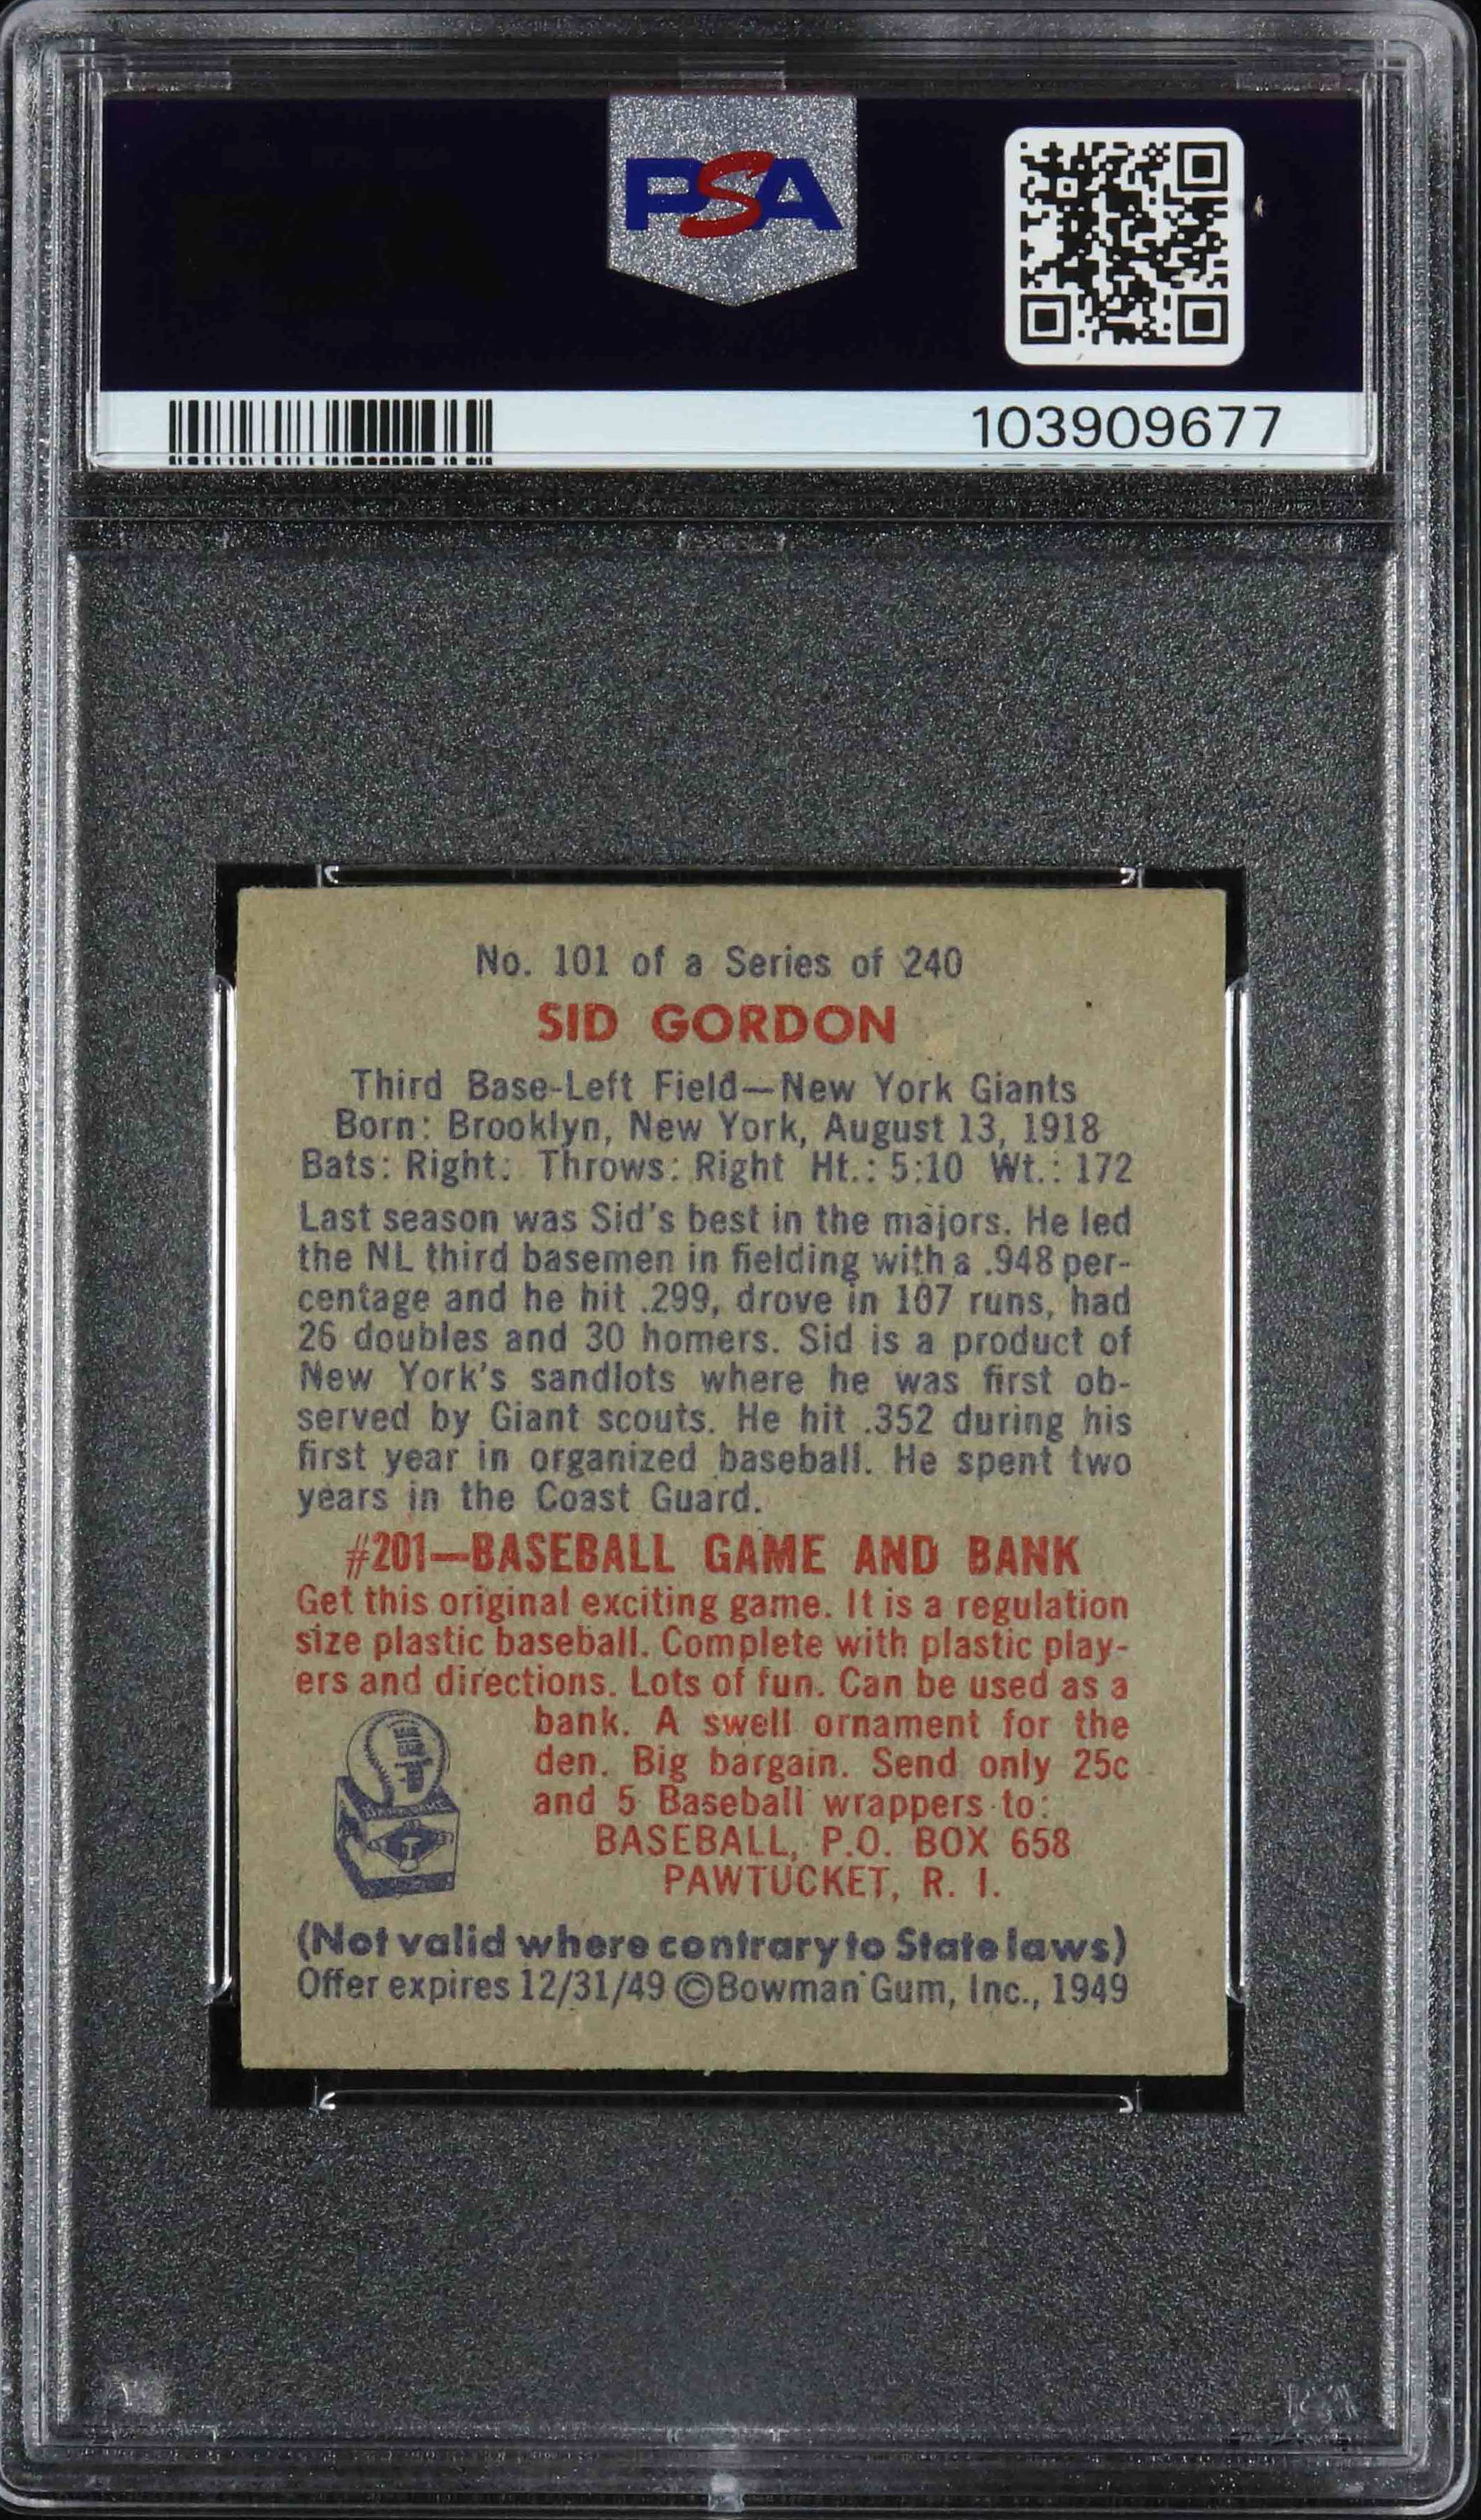 PSA
103909677
No. 101 of a Series of 240
SID GORDON
Third Base-Left Field—New York Giants
Born: Brooklyn, New York, August 13, 1918
Bats: Right. Throws: Right Ht.: 5:10 Wt.: 172
Last season was Sid's best in the majors. He led
the NL third basemen in fielding with a .948 per-
centage and he hit .299, drove in 107 runs, had
26 doubles and 30 homers. Sid is a product of
New York's sandlots where he was first ob-
served by Giant scouts. He hit .352 during his
first year in organized baseball. He spent two
years in the Coast Guard.
#201—BASEBALL GAME AND BANK
Get this original exciting game. It is a regulation
size plastic baseball. Complete with plastic play-
ers and directions. Lots of fun. Can be used as a
bank. A swell ornament for the
den. Big bargain. Send only 25c
and 5 Baseball wrappers to:
BASEBALL, P.O. BOX 658
PAWTUCKET, R. I.
(Not valid where contrary to State laws)
Offer expires 12/31/49 ©Bowman Gum, Inc., 1949